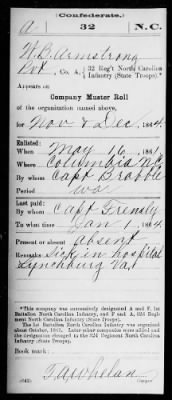 Confederate.
A 32 N.C.
W. B. Armstrong
Pvt, Co. A, 32 Reg't North Carolina
Infantry (State Troops).*
Appears on
Company Muster Roll
of the organization named above,
for Nov & Dec, 1864.
Enlisted:
When May 16, 1861
Where Columbia N.C.
By whom Capt Brabble
Period war
Last paid:
By whom Capt
To what time Jan 1, 1864.
Present or absent absent
Remarks: Sick in hospital
Lynchburg Va.
*This company was successively designated A and F, 1st
Battalion North Carolina Infantry, and F and A, 32d Regiment
North Carolina Infantry.
The 1st Battalion North Carolina Infantry was organized
about October, 1861. Later other companies were added and
the designation changed to the 32d Regiment North Carolina
Infantry (State Troops).
Book mark:
T. A. Whelan
Copyist